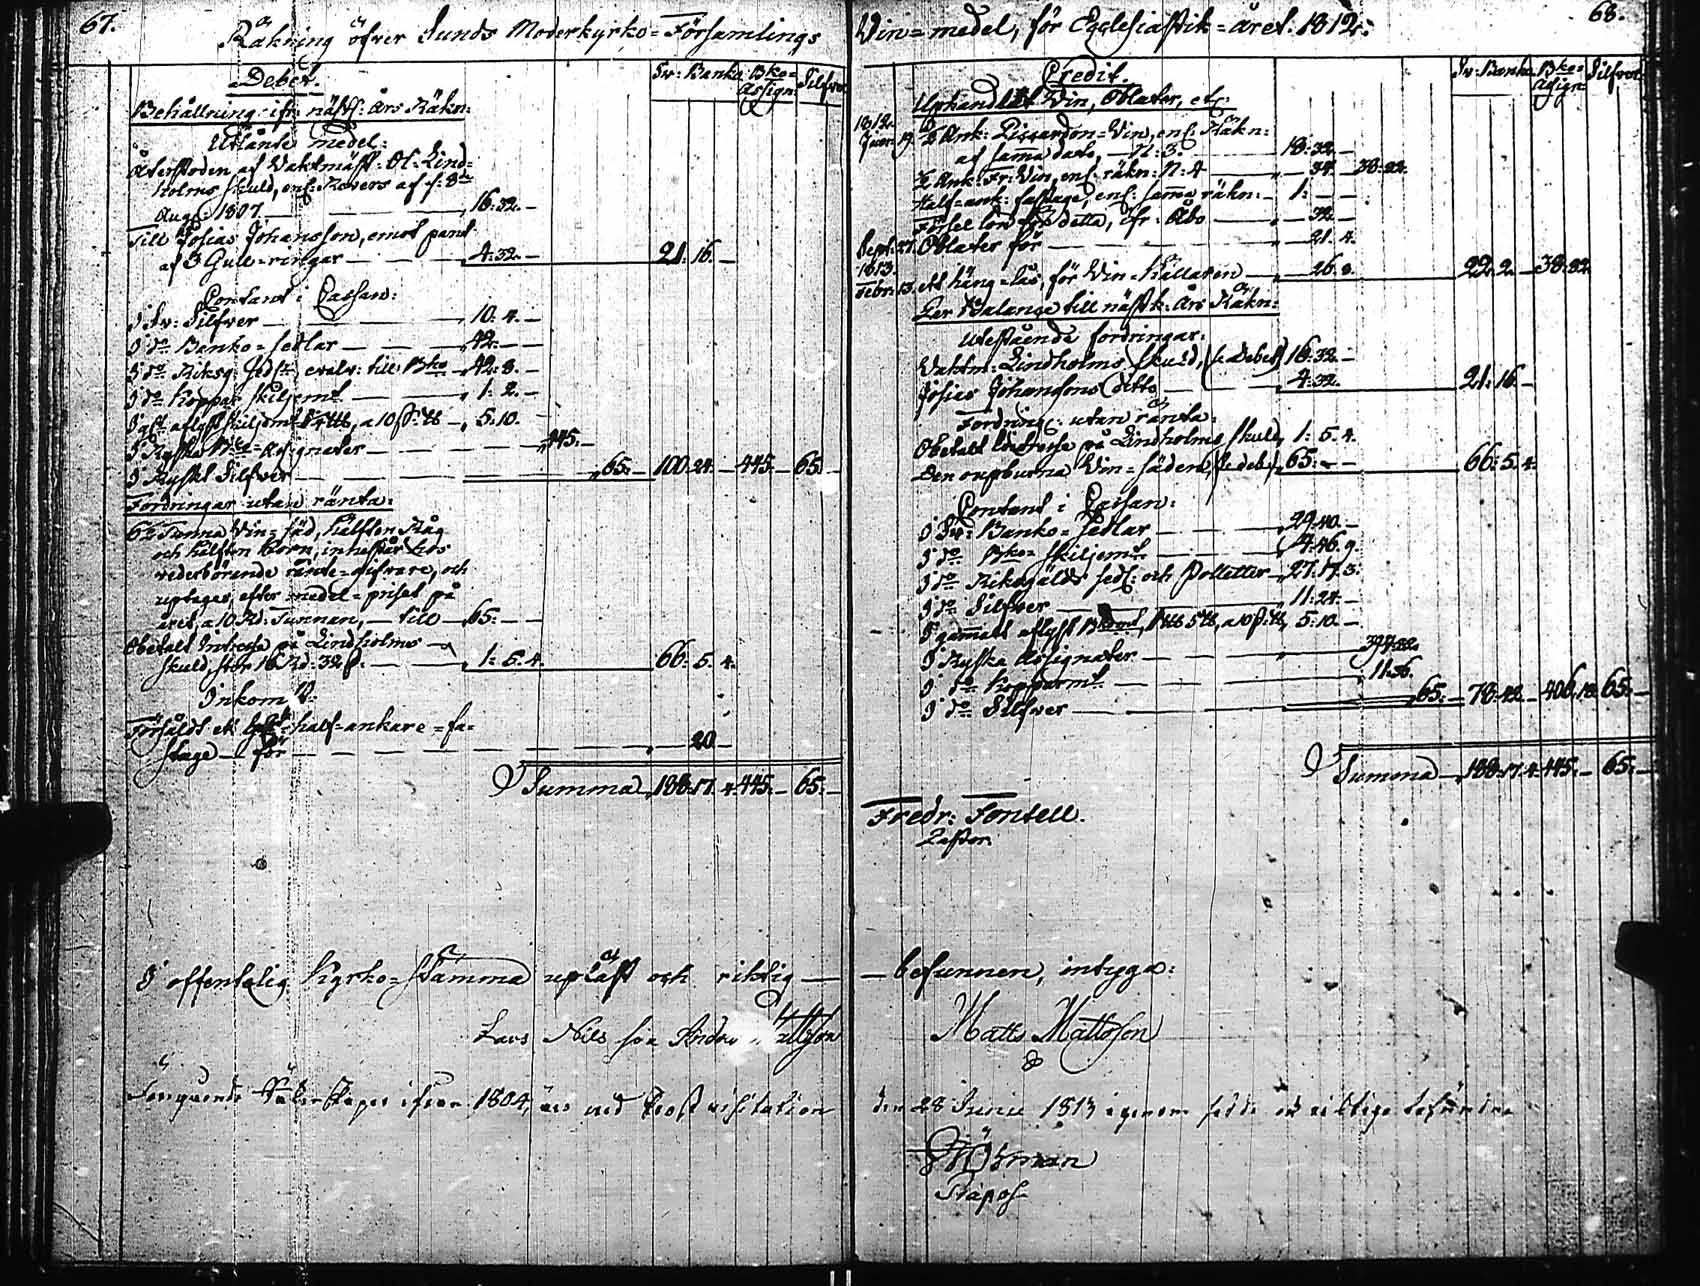 67.
Räkning öfver Sunds Moderkyrko=Församlings
Debet.
Sv: Banko Bko= Assign: Silfver
Behållning ifr: näst: års Räkn:
Utlånte medel:
Återstoden af Vaktmäst: Ol: Lind=
holms skuld, enl: Revers af d: 8de
Aug: 1807. 16:32.
Till Josias Johansson, emot pant
af 3 Guld=ringar 4:32. 21:16.
Contant i Cassan:
I Sv: Silfver 10. 4.
I do Banko=sedlar 42.
I do Riksg: sed: evalv: till Bko 42:8.
I do Koppar skiljemt 1:2.
5:10.
I Ryska Bko=Assignater 445.
I Ryskt Silfver 65. 100:24. 445. 65.
Fordringar utan ränta:
6½ Tunna Vin=säd, hälften Råg
och hälften Korn, innestår hos
vederbörande ränte=gifvare, och
uptages efter medel=priset på
året, a 10 Rd: Tunnan, till 65.
Obetalt Intresse på Lindholms
skuld, stor 16 Rd: 32 1:5.4. 66.5.4.
Inkom
Försåldt ett half=ankare=fa=
stage för 20.
Summa 188:17.4. 445. 65.
68.
Vin=medel, för Ecclesiastik=året 1812:
Credit.
Sv: Banko Bko= Assign: Silfver
Uphandlat Vin, Oblater, etc:
1812.
Jun: 19. ½ Ank: Vin, enl: Räkn:
af samma dato, N: 3. 18:32.
½ Ank: Fr: Vin, enl: räkn: N: 4 34. 38:32.
Half=ank: fastage, enl: samma räkn: 1:
Försel lön för detta, ifr: Åbo 32.
Sept: 27. Oblater för 21. 4.
1813.
Febr: 13. ett häng=lås, för Vin=källaren 26.8. 22:2. 38:32.
Per Balance till nästk: års Räkn:
Utestående fordringar.
Vaktm: Lindholms skuld, (se Debet) 16:32.
Josias Johanssons ditto 4:32. 21:16.
Fordring: utan ränta:
Obetalt Intresse på Lindholms skuld, 1:5.4.
Den onupburna Vin=säden, (se deb:) 65. 66:5.4.
Contant i Cassan:
I Sv: Banko=Sedlar 29:40.
I do Bko= skiljemt 4:46.9.
I do Riksgälds sed: och Polletter 27:17.3.
I do Silfver 11:24.
5:10.
I Ryska Assignater
I do Kopparmt 11:56.
I do Silfver 65. 78:42. 406.18. 65.
Summa 188:17.4. 445. 65.
Fredr: Fontell.
Pastor.
I offentelig kyrko=Stämma upläst och riktig
befunnen, intyga:
Lars Nils son Anders Mattsson
Matts Mattsson
ifrån 1804, äro vid Prost visitation
den 28 Junii 1813 igenom sedde och riktige befundne
Öhman
Præpos